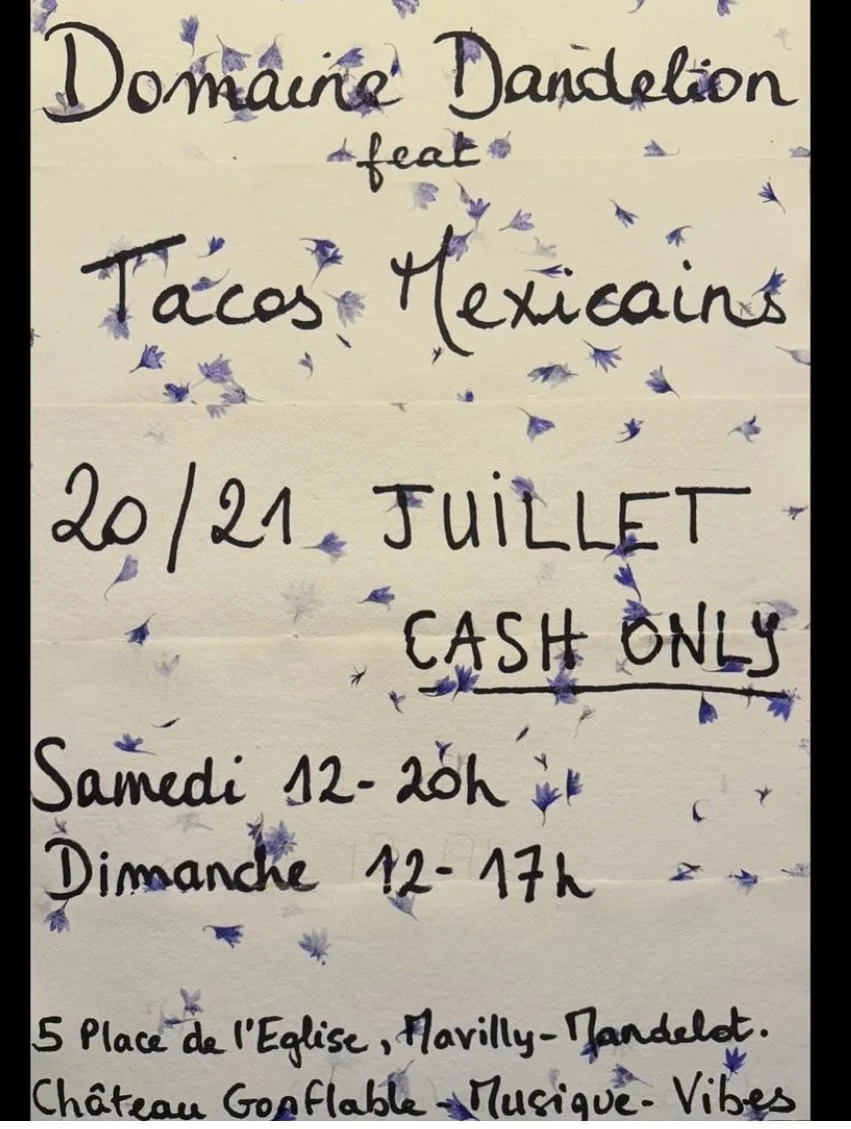 Domaine Dandelion
feat
Tacos Mexicains
20/21 JUILLET
CASH ONLY
Samedi 12-20h
Dimanche 12-17h
5 Place de l'Eglise, Mavilly-Mandelot.
Château Gonflable - Musique - Vibes